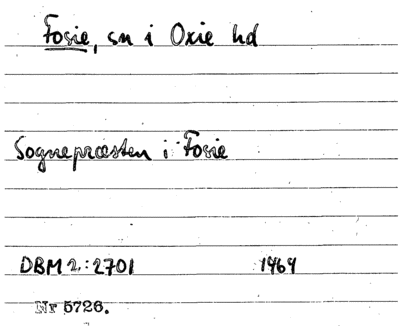 Fosie, sn i Oxie hd
Sognepræsten i Fosie
DBM 2.: 2701 1464
Nr 5726.